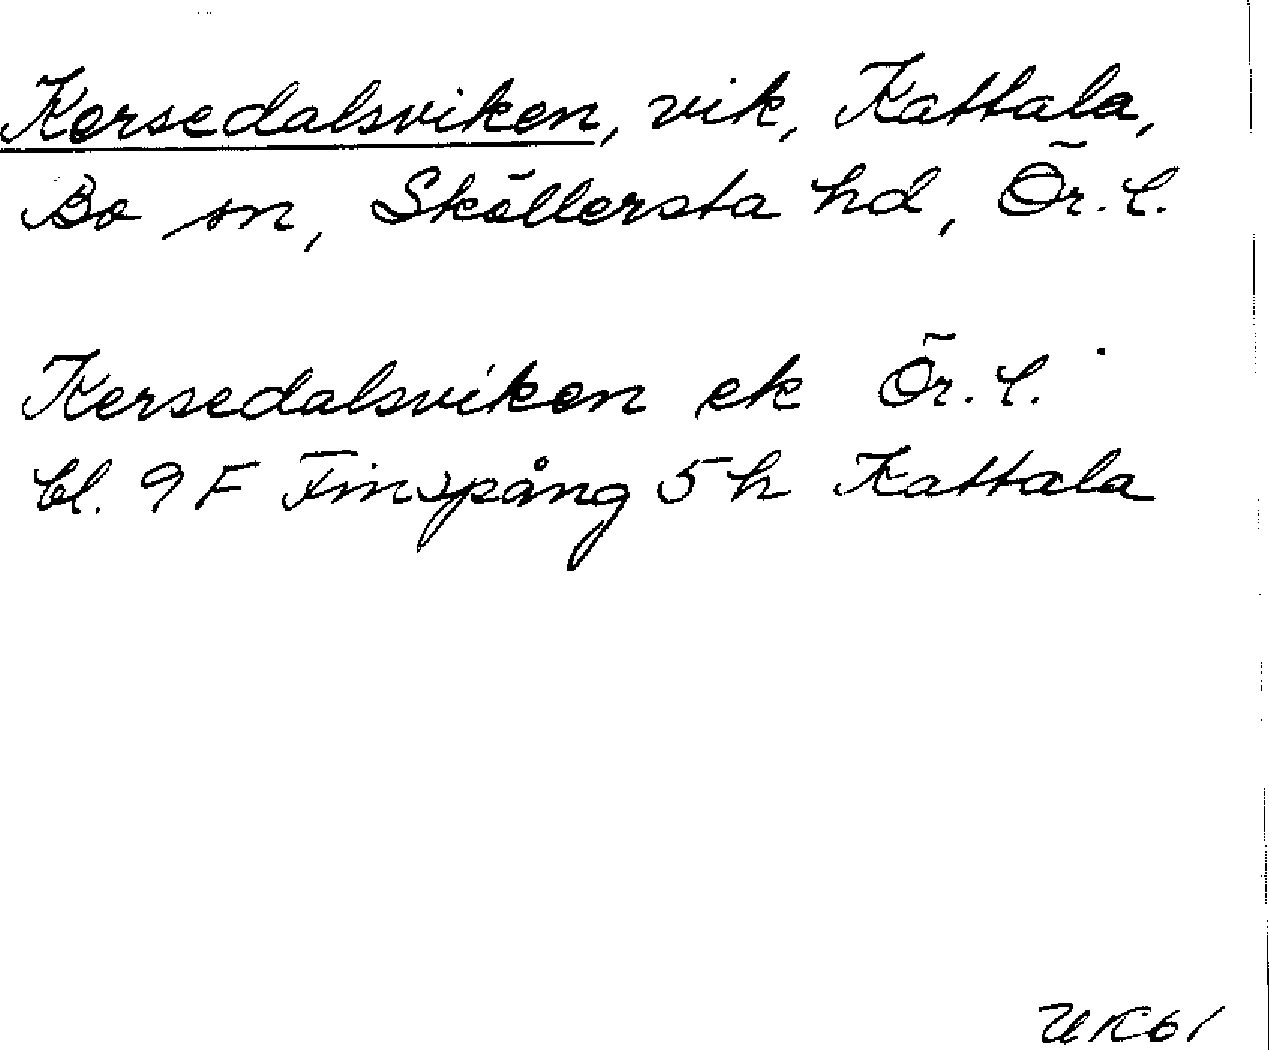 Kersedalsviken, vik, Kattala,
Bo sn, Sköllersta hd, Ör. l.
Kersedalsviken ek Ör. l.
bl. 9 F Finspång 5 h Kattala